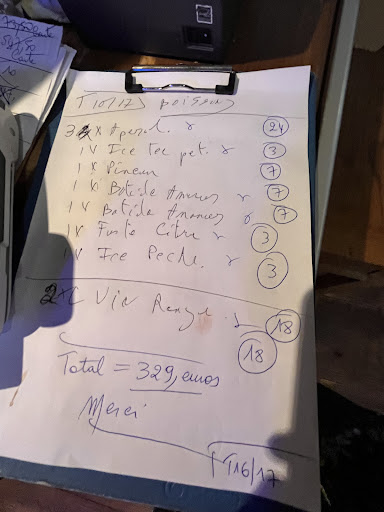 T 16/17 Boissons
3 x Aperol. 24
1 x Ice Tea pet. 3
1 x Pineau 7
1 x Batida Ananas 7
1 x Batida Ananas 7
1 x Fuste Citru 3
1 x Ice Peche. 3
2 x Vin Rouge 18
18
Total = 329, euros
Merci
T16/17